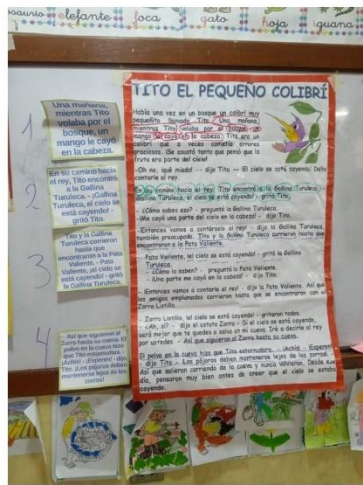 osaurio elefante foca gato hoja iguana
TITO EL PEQUEÑO COLIBRÍ
1
Una mañana,
mientras Tito
volaba por el
bosque, un
mango le cayó
en la cabeza.
2
En su camino hacia
el rey, Tito encontró
a la Gallina
Turuleca. - ¡Gallina
Turuleca, el cielo se
está cayendo! -
gritó Tito.
3
Tito y la Gallina
Turuleca corrieron
hasta que
encontraron a la Pata
Valiente. - Pata
Valiente, ¡el cielo se
está cayendo! - gritó
la Gallina Turuleca.
4
Así que siguieron al
Zorro hasta su cueva. El
polvo en la cueva
hizo que Tito estornudara. -
¡Achís! - ¡Esperen! - dijo
Tito. ¡Los pájaros deben
mantenerse lejos de los
zorros!
Había una vez en un bosque un colibrí muy
pequeñito llamado Tito. Una mañana,
mientras Tito volaba por el bosque, un
mango le cayó en la cabeza. Tito era un
colibrí que a veces cometía errores
graciosos. ¡Se asustó tanto que pensó que la
fruta era parte del cielo!
- Oh no, ¡qué miedo! - dijo Tito - ¡El cielo se está cayendo! Debo
contarle al rey.
En su camino hacia el rey, Tito encontró a la Gallina Turuleca.
- ¡Gallina Turuleca, el cielo se está cayendo! - gritó Tito.
- ¿Cómo sabes eso? - preguntó la Gallina Turuleca.
- ¡Me cayó una parte del cielo en la cabeza! - dijo Tito.
- ¡Entonces vamos a contárselo al rey! - dijo la Gallina Turuleca
también preocupada. Tito y la Gallina Turuleca corrieron hasta que
encontraron a la Pata Valiente.
- Pata Valiente, ¡el cielo se está cayendo! - gritó la Gallina
Turuleca.
- ¿Cómo lo saben? - preguntó la Pata Valiente.
- ¡Una parte me cayó en la cabeza! - dijo Tito.
- ¡Entonces vamos a contarle al rey! - dijo la Pata Valiente. Así que
los amigos emplumados corrieron hasta que se encontraron con el
Zorro Listillo.
- Zorro Listillo, ¡el cielo se está cayendo! - gritaron todos.
- ¿Ah, sí? - dijo el astuto Zorro - Si el cielo se está cayendo,
será mejor que te quedes a salvo en mi cueva. Iré a decirle al rey
por ustedes. - Así que siguieron al Zorro hasta su cueva.
El polvo en la cueva hizo que Tito estornudara. - ¡Achís! - ¡Esperen!
- dijo Tito - ¡Los pájaros deben mantenerse lejos de los zorros!
Así que salieron corriendo de la cueva y nunca volvieron. Desde ese
día, pensaron muy bien antes de creer que el cielo se estaba
cayendo.